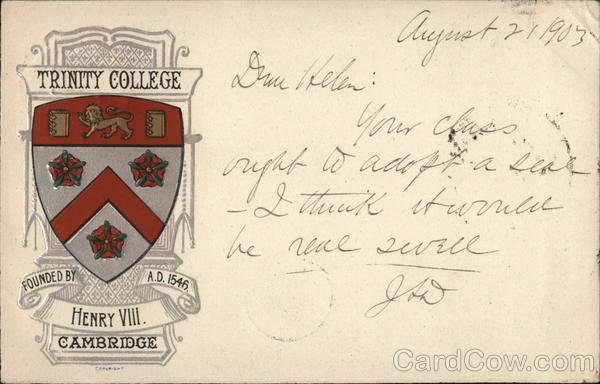 TRINITY COLLEGE
FOUNDED BY A.D. 1546.
HENRY VIII.
CAMBRIDGE
COPYRIGHT
August 21 1903
Dear Helen:
Your class
ought to adopt a seal
- I think it would
be real swell
CardCow.com